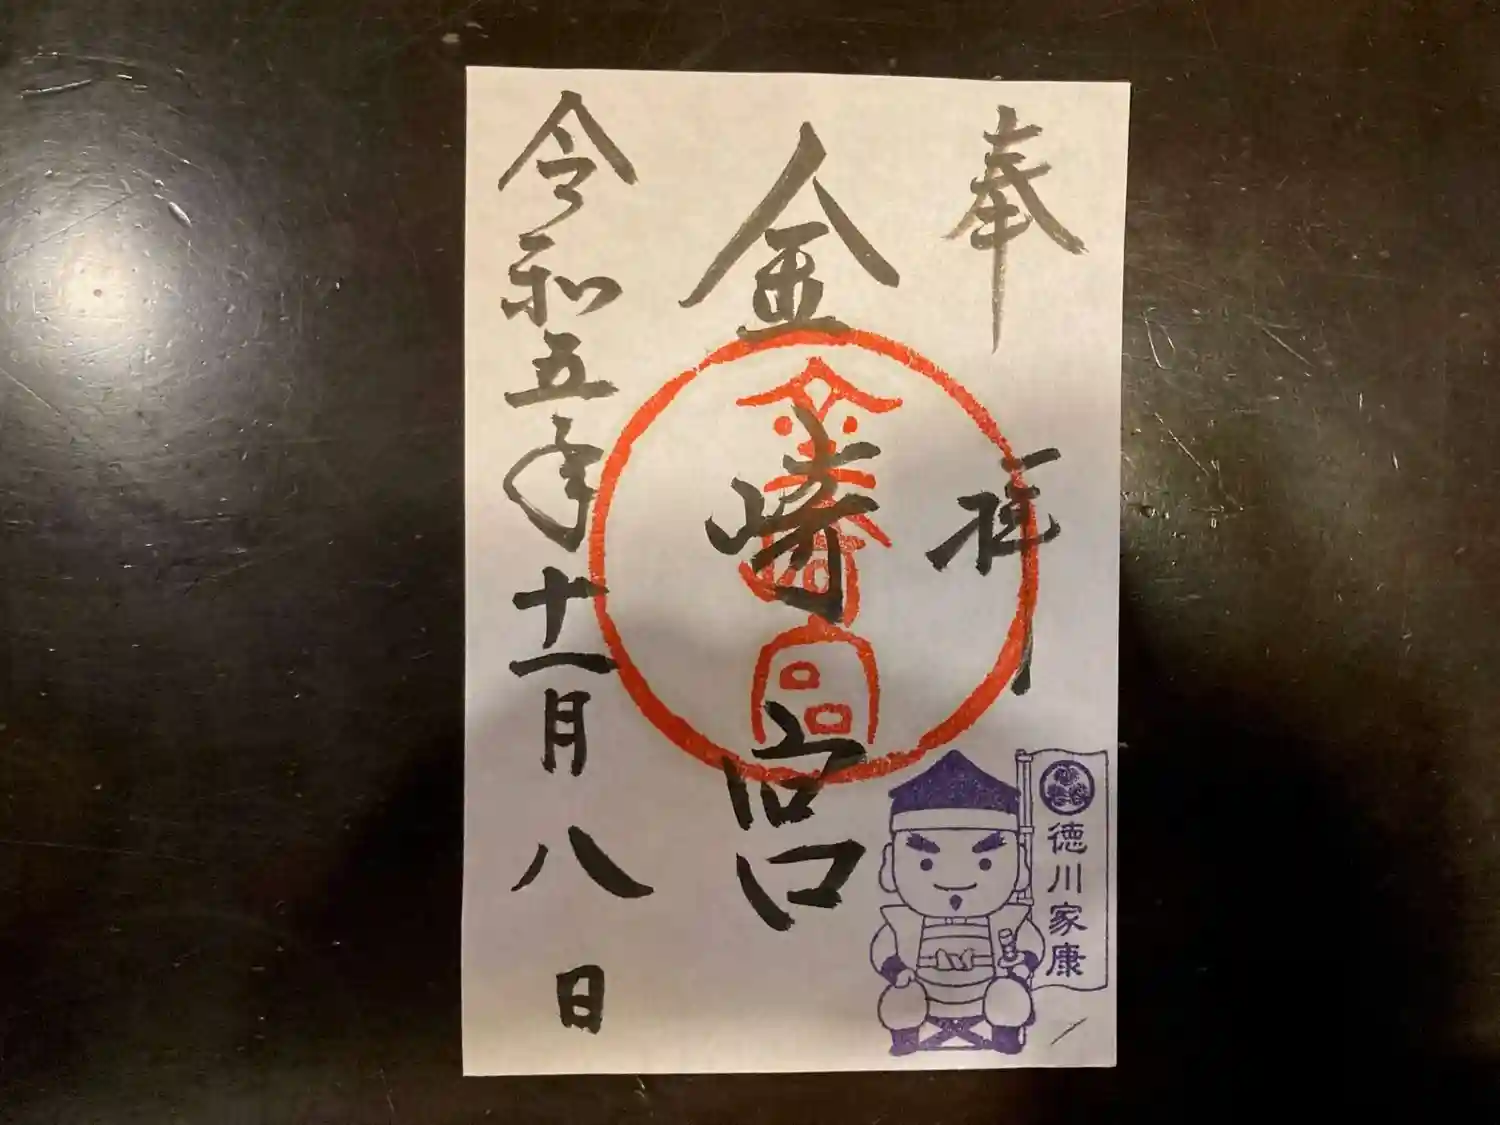 奉拝
金崎宮
令和五年十一月八日
金崎宮
徳川家康